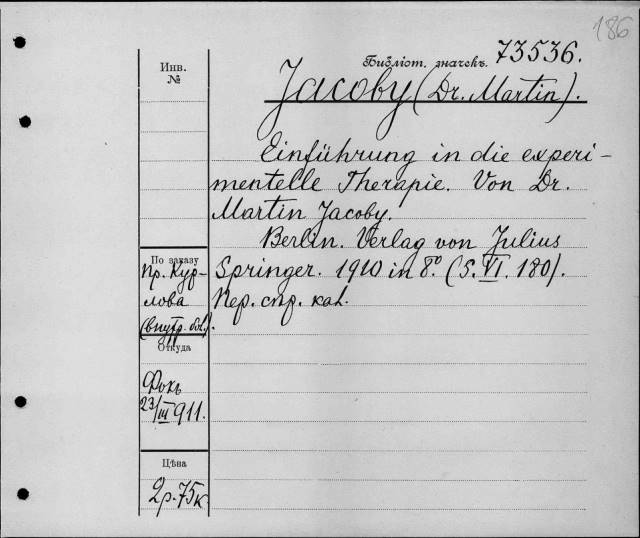 186
Библіот. значекъ. 73536.
Инв.
№
Jacoby (Dr. Martin).
Einführung in die experi-
mentelle Therapie. Von Dr.
Martin Jacoby.
Berlin. Verlag von Julius
Springer. 1910 in 8.° (S. VI. 180).
Пер. спр. кал.
По заказу
пр. Кур-
лова
(внутр. бол.).
Откуда
Фокъ
23/III 911.
Цѣна
2р.75к.